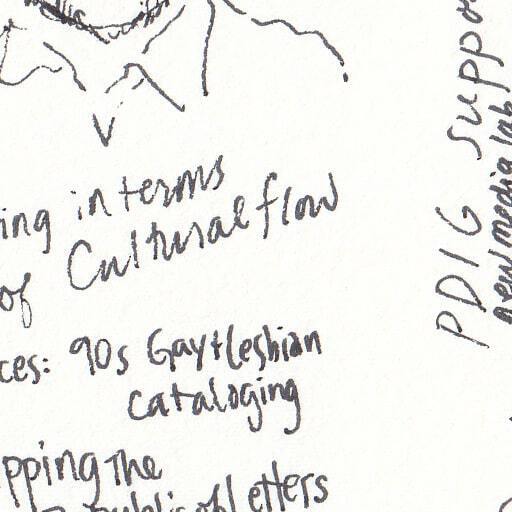 ing in terms
of Cultural flow
ces: 90s Gay+lesbian
cataloging
pping The
Republic of Letters
PDIG suppo
new media lab